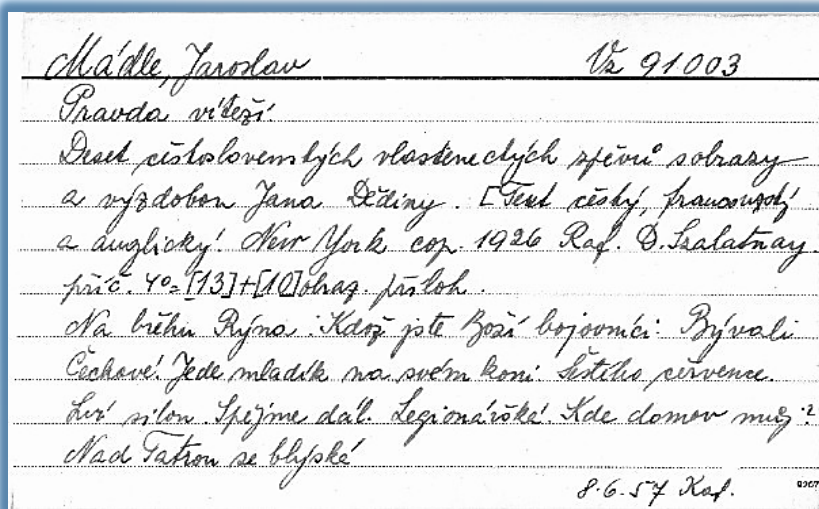 Mádle, Jaroslav Vz 91003
Pravda vítězí.
Deset československých vlasteneckých zpěvů s obrazy
a výzdobou Jana Dědiny. [Text český, francouzský
a anglický! New York cop. 1926 Raf. D. Szalatnay.
příč. 4°= [13]+[10] obraz. příloh.
Na břehu Rýna: Kdož jste Boží bojovníci: Bývali
Čechové! Jede mladík na svém koni. Šestého července.
Lví silou. Spějme dál. Legionářské. Kde domov muj?
Nad Tatrou se blýská
8.6.57 Kaf.